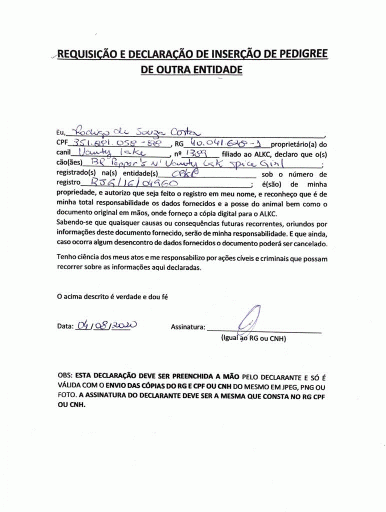 REQUISIÇÃO E DECLARAÇÃO DE INSERÇÃO DE PEDIGREE
DE OUTRA ENTIDADE
Eu, Rodrigo de Souza Costa,
CPF, RG proprietário(a) do
canil Vanity Lake, nº 1389 filiado ao ALKC, declaro que o(s)
cão(ães) BR Pepper's N' Vanity Lak Spice Girl;
registrado(s) na(s) entidade(s) CBKC sob o número de
registro RJG/16/04960; é(são) de minha
propriedade, e autorizo que seja feito o registro em meu nome, e reconheço que é de
minha total responsabilidade os dados fornecidos e a posse do animal bem como o
documento original em mãos, onde forneço a cópia digital para o ALKC.
Sabendo-se que quaisquer causas ou consequências futuras recorrentes, oriundos por
informações deste documento fornecido, serão de minha responsabilidade. E que ainda,
caso ocorra algum desencontro de dados fornecidos o documento poderá ser cancelado.
Tenho ciência dos meus atos e me responsabilizo por ações cíveis e criminais que possam
recorrer sobre as informações aqui declaradas.
O acima descrito é verdade e dou fé
Data: 04/08/2020 Assinatura:
(Igual ao RG ou CNH)
OBS: ESTA DECLARAÇÃO DEVE SER PREENCHIDA A MÃO PELO DECLARANTE E SÓ É
VÁLIDA COM O ENVIO DAS CÓPIAS DO RG E CPF OU CNH DO MESMO EM JPEG, PNG OU
FOTO. A ASSINATURA DO DECLARANTE DEVE SER A MESMA QUE CONSTA NO RG CPF
OU CNH.